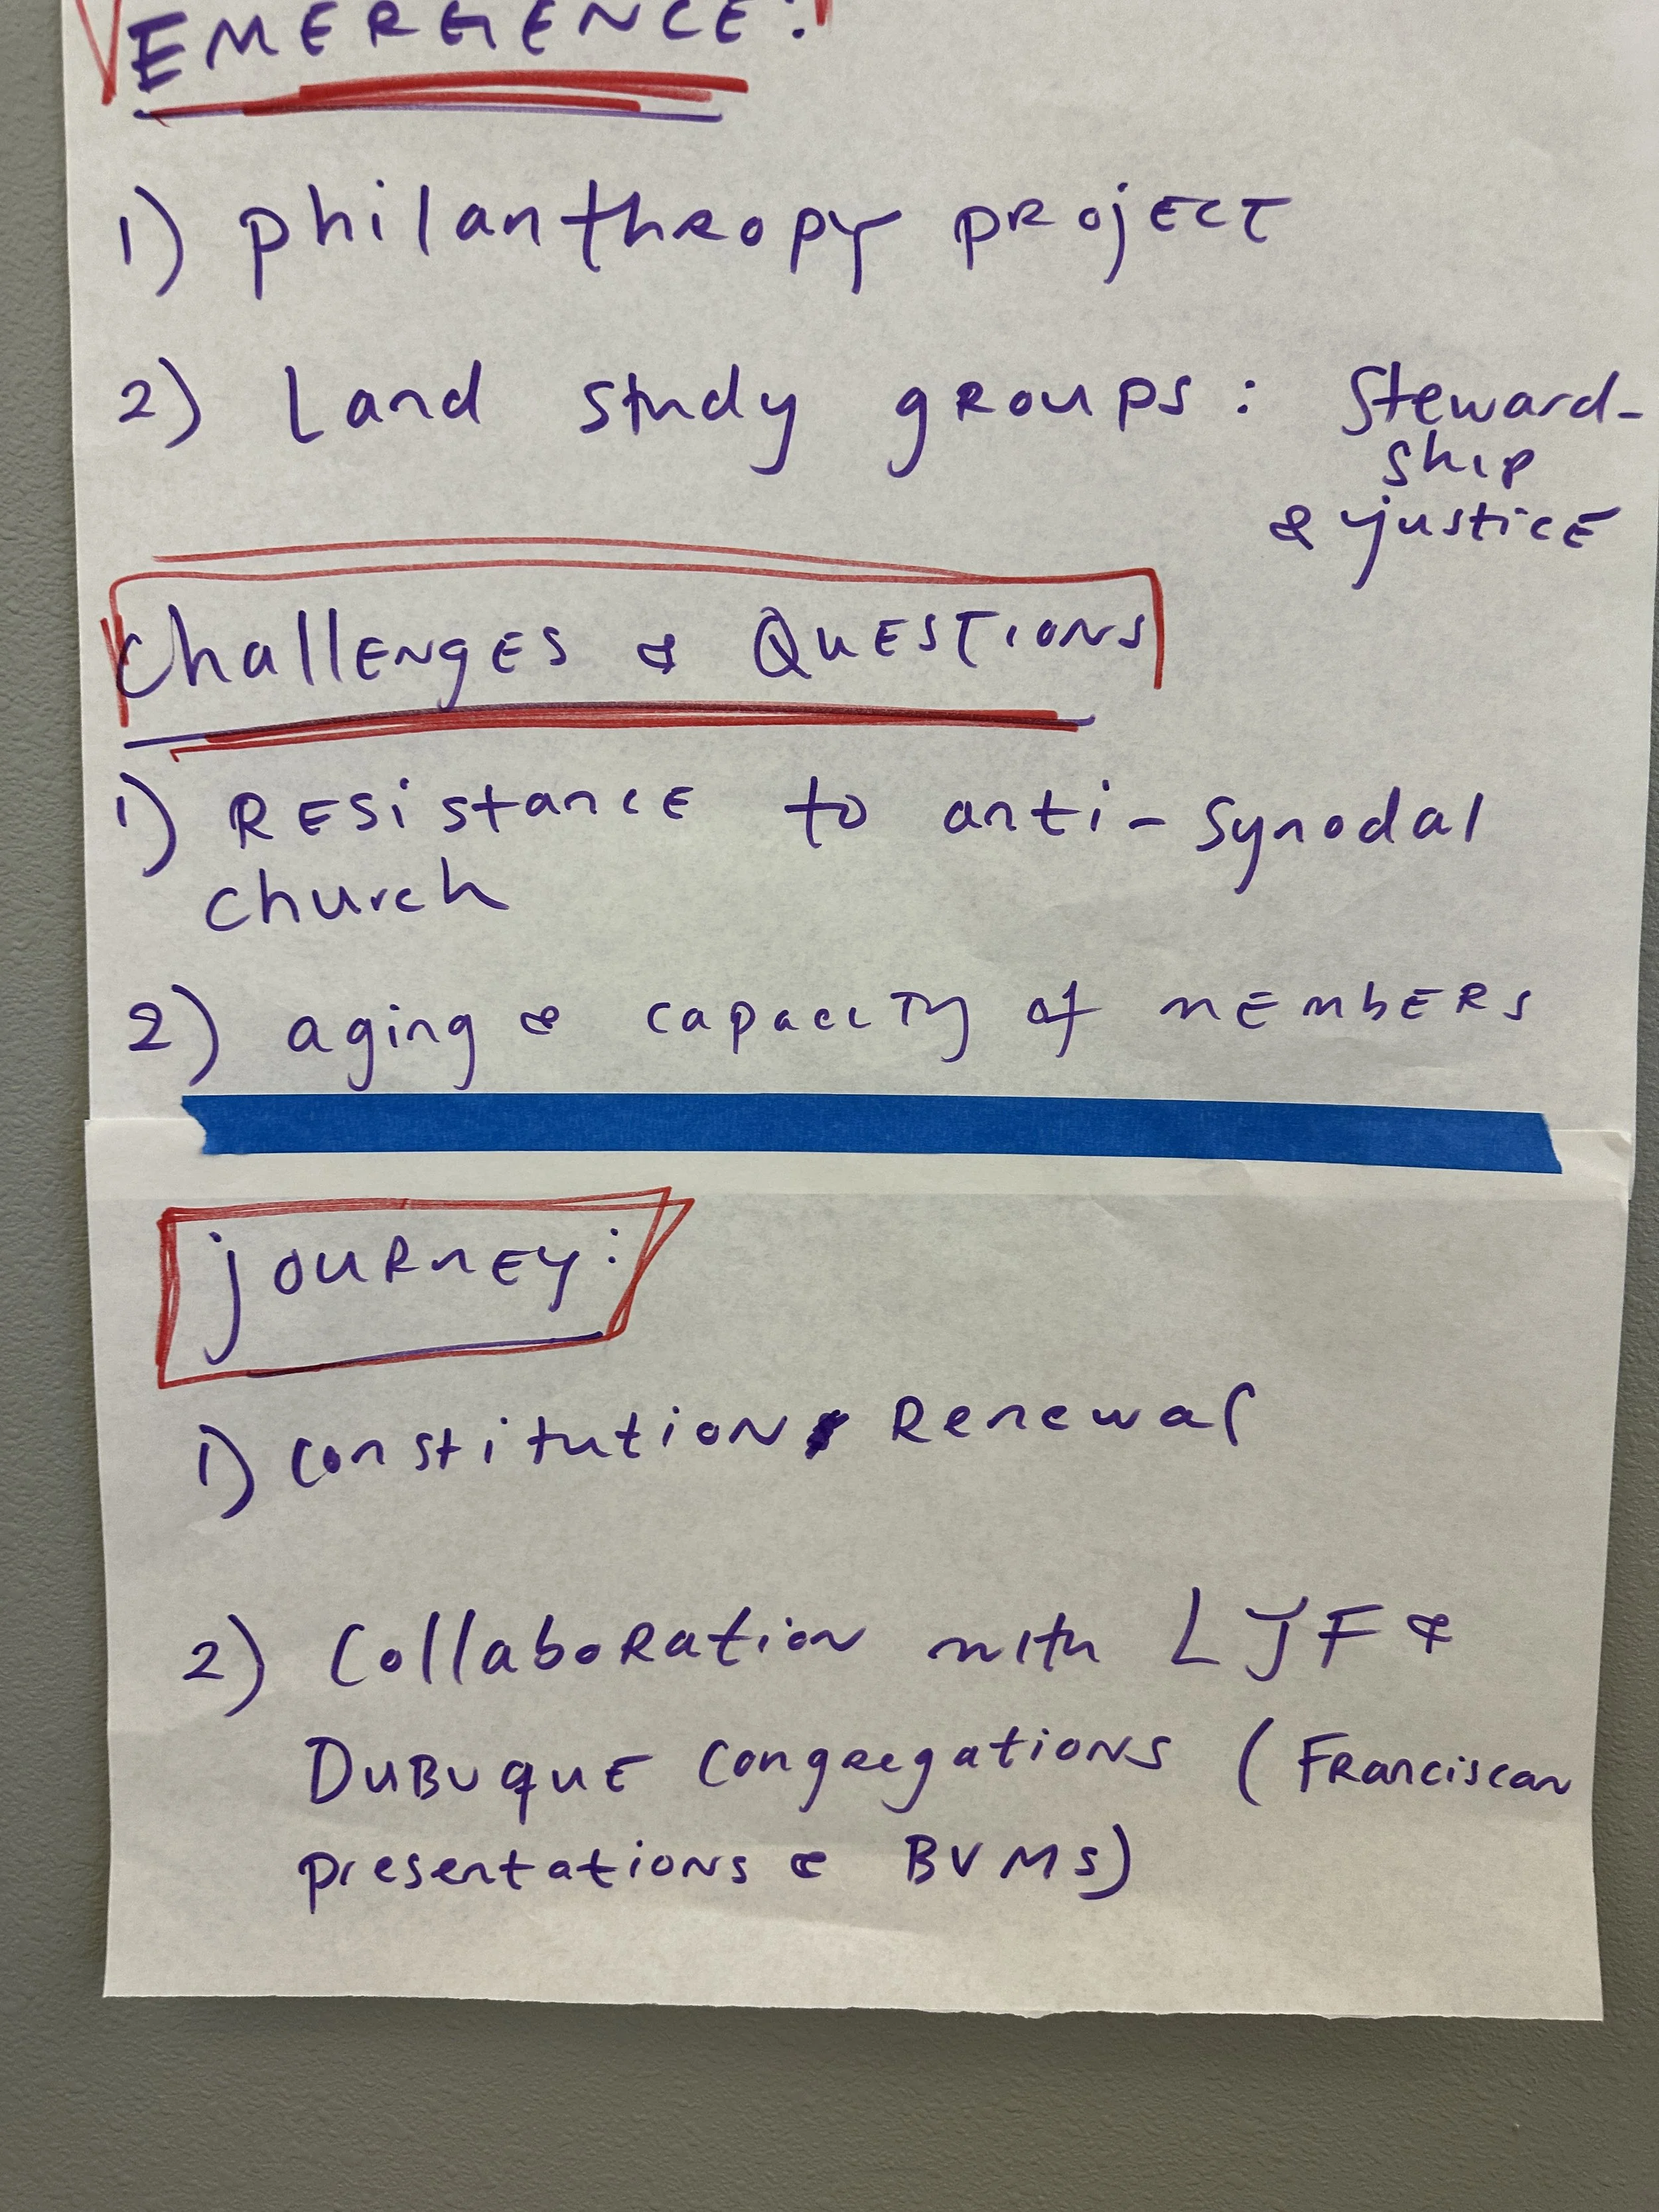 EMERGENCE:
1) philanthropy project
2) Land study groups: Steward-
ship
& justice
Challenges & Questions
1) Resistance to anti-synodal
church
2) aging & capacity of members
journey:
1) Constitution Renewal
2) Collaboration with LJF &
Dubuque Congregations (Franciscan
presentations & BVMs)